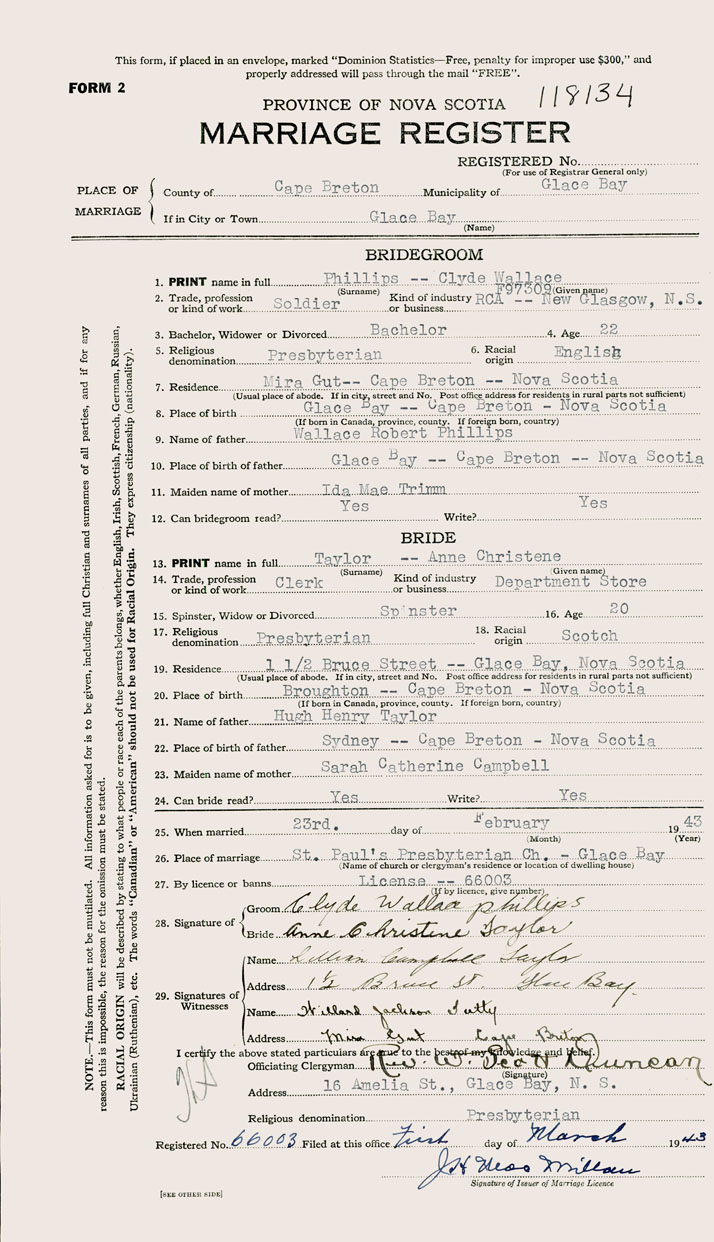 This form, if placed in an envelope, marked "Dominion Statistics—Free, penalty for improper use $300," and
properly addressed will pass through the mail "FREE".
FORM 2
PROVINCE OF NOVA SCOTIA 118134
MARRIAGE REGISTER
REGISTERED No.
(For use of Registrar General only)
PLACE OF MARRIAGE
County of Cape Breton Municipality of Glace Bay
If in City or Town Glace Bay
(Name)
BRIDEGROOM
1. PRINT name in full Phillips -- Clyde Wallace
(Surname) F97309 (Given name)
2. Trade, profession or kind of work Soldier Kind of industry or business RCA -- New Glasgow, N.S.
3. Bachelor, Widower or Divorced Bachelor 4. Age 22
5. Religious denomination Presbyterian 6. Racial origin English
7. Residence Mira Gut-- Cape Breton -- Nova Scotia
(Usual place of abode. If in city, street and No. Post office address for residents in rural parts not sufficient)
8. Place of birth Glace Bay -- Cape Breton - Nova Scotia
(If born in Canada, province, county. If foreign born, country)
9. Name of father Wallace Robert Phillips
10. Place of birth of father Glace Bay -- Cape Breton -- Nova Scotia
11. Maiden name of mother Ida Mae Trimm
12. Can bridegroom read? Yes Write? Yes
BRIDE
13. PRINT name in full Taylor -- Anne Christene
(Surname) (Given name)
14. Trade, profession or kind of work Clerk Kind of industry or business Department Store
15. Spinster, Widow or Divorced Sp'nster 16. Age 20
17. Religious denomination Presbyterian 18. Racial origin Scotch
19. Residence 1 1/2 Bruce Street -- Glace Bay, Nova Scotia
(Usual place of abode. If in city, street and No. Post office address for residents in rural parts not sufficient)
20. Place of birth Broughton -- Cape Breton - Nova Scotia
(If born in Canada, province, county. If foreign born, country)
21. Name of father Hugh Henry Taylor
22. Place of birth of father Sydney -- Cape Breton - Nova Scotia
23. Maiden name of mother Sarah Catherine Campbell
24. Can bride read? Yes Write? Yes
25. When married 23rd. day of February 1943
(Month) (Year)
26. Place of marriage St. Paul's Presbyterian Ch. - Glace Bay
(Name of church or clergyman's residence or location of dwelling house)
27. By licence or banns License -- 66003
(If by licence, give number)
28. Signature of
Groom Clyde Wallace phillips
Bride Anne Christine Taylor
29. Signatures of Witnesses
Name Lillian Campbell Taylor
Address 1½ Bruce St. Glace Bay.
Name Willard Jackson Tutty
Address Mira Gut Cape Breton
I certify the above stated particulars are true to the best of my knowledge and belief.
Officiating Clergyman Rev. W. Scott Duncan
(Signature)
Address 16 Amelia St., Glace Bay, N. S.
Religious denomination Presbyterian
Registered No. 66003 Filed at this office First day of March 1943
Signature of Issuer of Marriage Licence
[SEE OTHER SIDE]
NOTE.—This form must not be mutilated. All information asked for is to be given, including full Christian and surnames of all parties, and if for any
reason this is impossible, the reason for the omission must be stated.
RACIAL ORIGIN will be described by stating to what people or race each of the parents belongs, whether English, Irish, Scottish, French, German, Russian,
Ukrainian (Ruthenian), etc. The words "Canadian" or "American" should not be used for Racial Origin. They express citizenship (nationality).